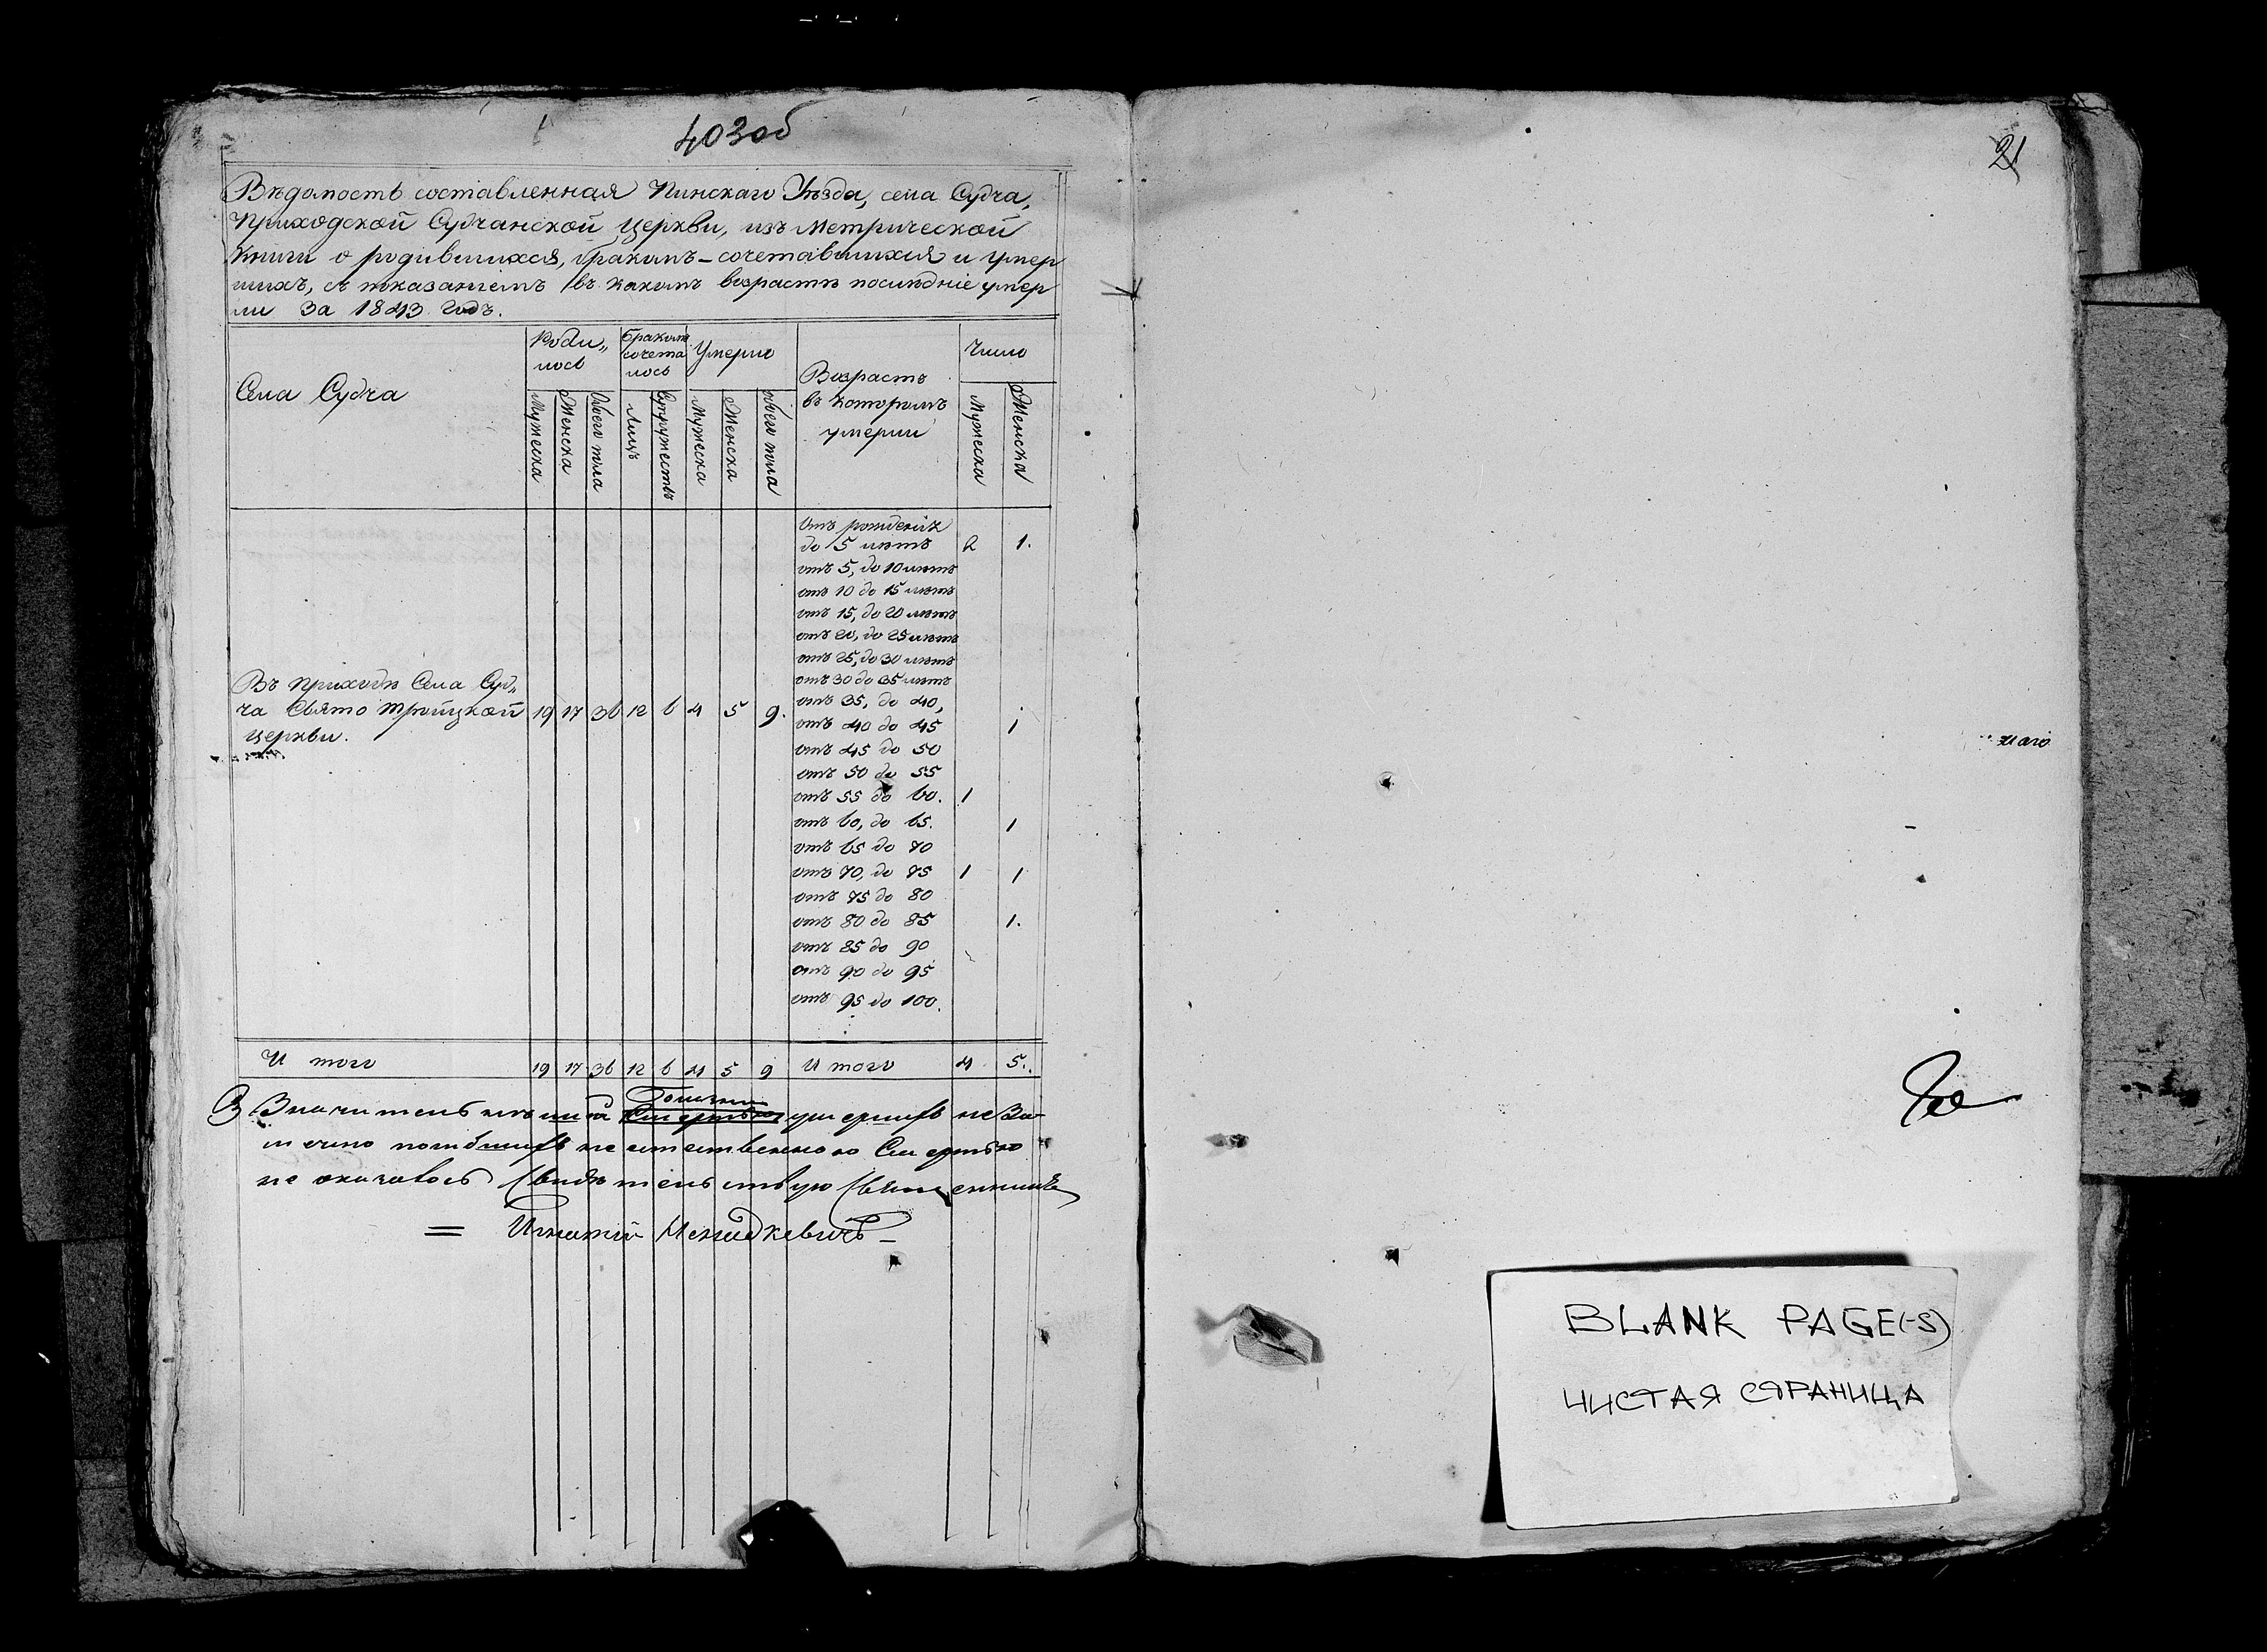 403об
Вѣдомость составленная Пинскаго Уѣзда, села Судча,
Приходской Судчанской Церкви, изъ Метрической
Книги о родившихся, бракомъ-сочетавшихся и умер
шихъ, съ показаніемъ въ какомъ возрастѣ послѣдніе умер
ли За 1843 годъ.
Села Судча
Роди„
лось
Бракомъ
сочета
лось
Умерло
Возрастъ
въ которомъ
умерли
Число
Мужеска
Женска
Обоего пола
Лицъ
Супружествъ
Мужеска
Женска
Обоего пола
Мужеска
Женска
Отъ рожденія
до 5 лѣтъ 2 1.
отъ 5, до 10 лѣтъ
отъ 10 до 15 лѣтъ
отъ 15, до 20 лѣтъ
отъ 20, до 25 лѣтъ
отъ 25, до 30 лѣтъ
отъ 30 до 35 лѣтъ
отъ 35, до 40,
отъ 40 до 45 1
отъ 45 до 50
отъ 50 до 55
отъ 55 до 60. 1
отъ 60, до 65. 1
отъ 65 до 70
отъ 70, до 75 1 1
отъ 75 до 80
отъ 80 до 85 1.
отъ 85 до 90
отъ 90 до 95
отъ 95 до 100.
Въ приходѣ Села Суд„
ча Свято Троицкой 19 17 36 12 6 4 5 9.
церкви.
И того 19 17 36 12 6 4 5 9 И того 4 5.
Значительно
умершихъ не За-
мечено погибшихъ не естественною Смертью
не оказалось Свидѣтельствую Священникъ
= Игнатій
21
BLANK PAGE(-S)
ЧИСТАЯ СТРАНИЦА